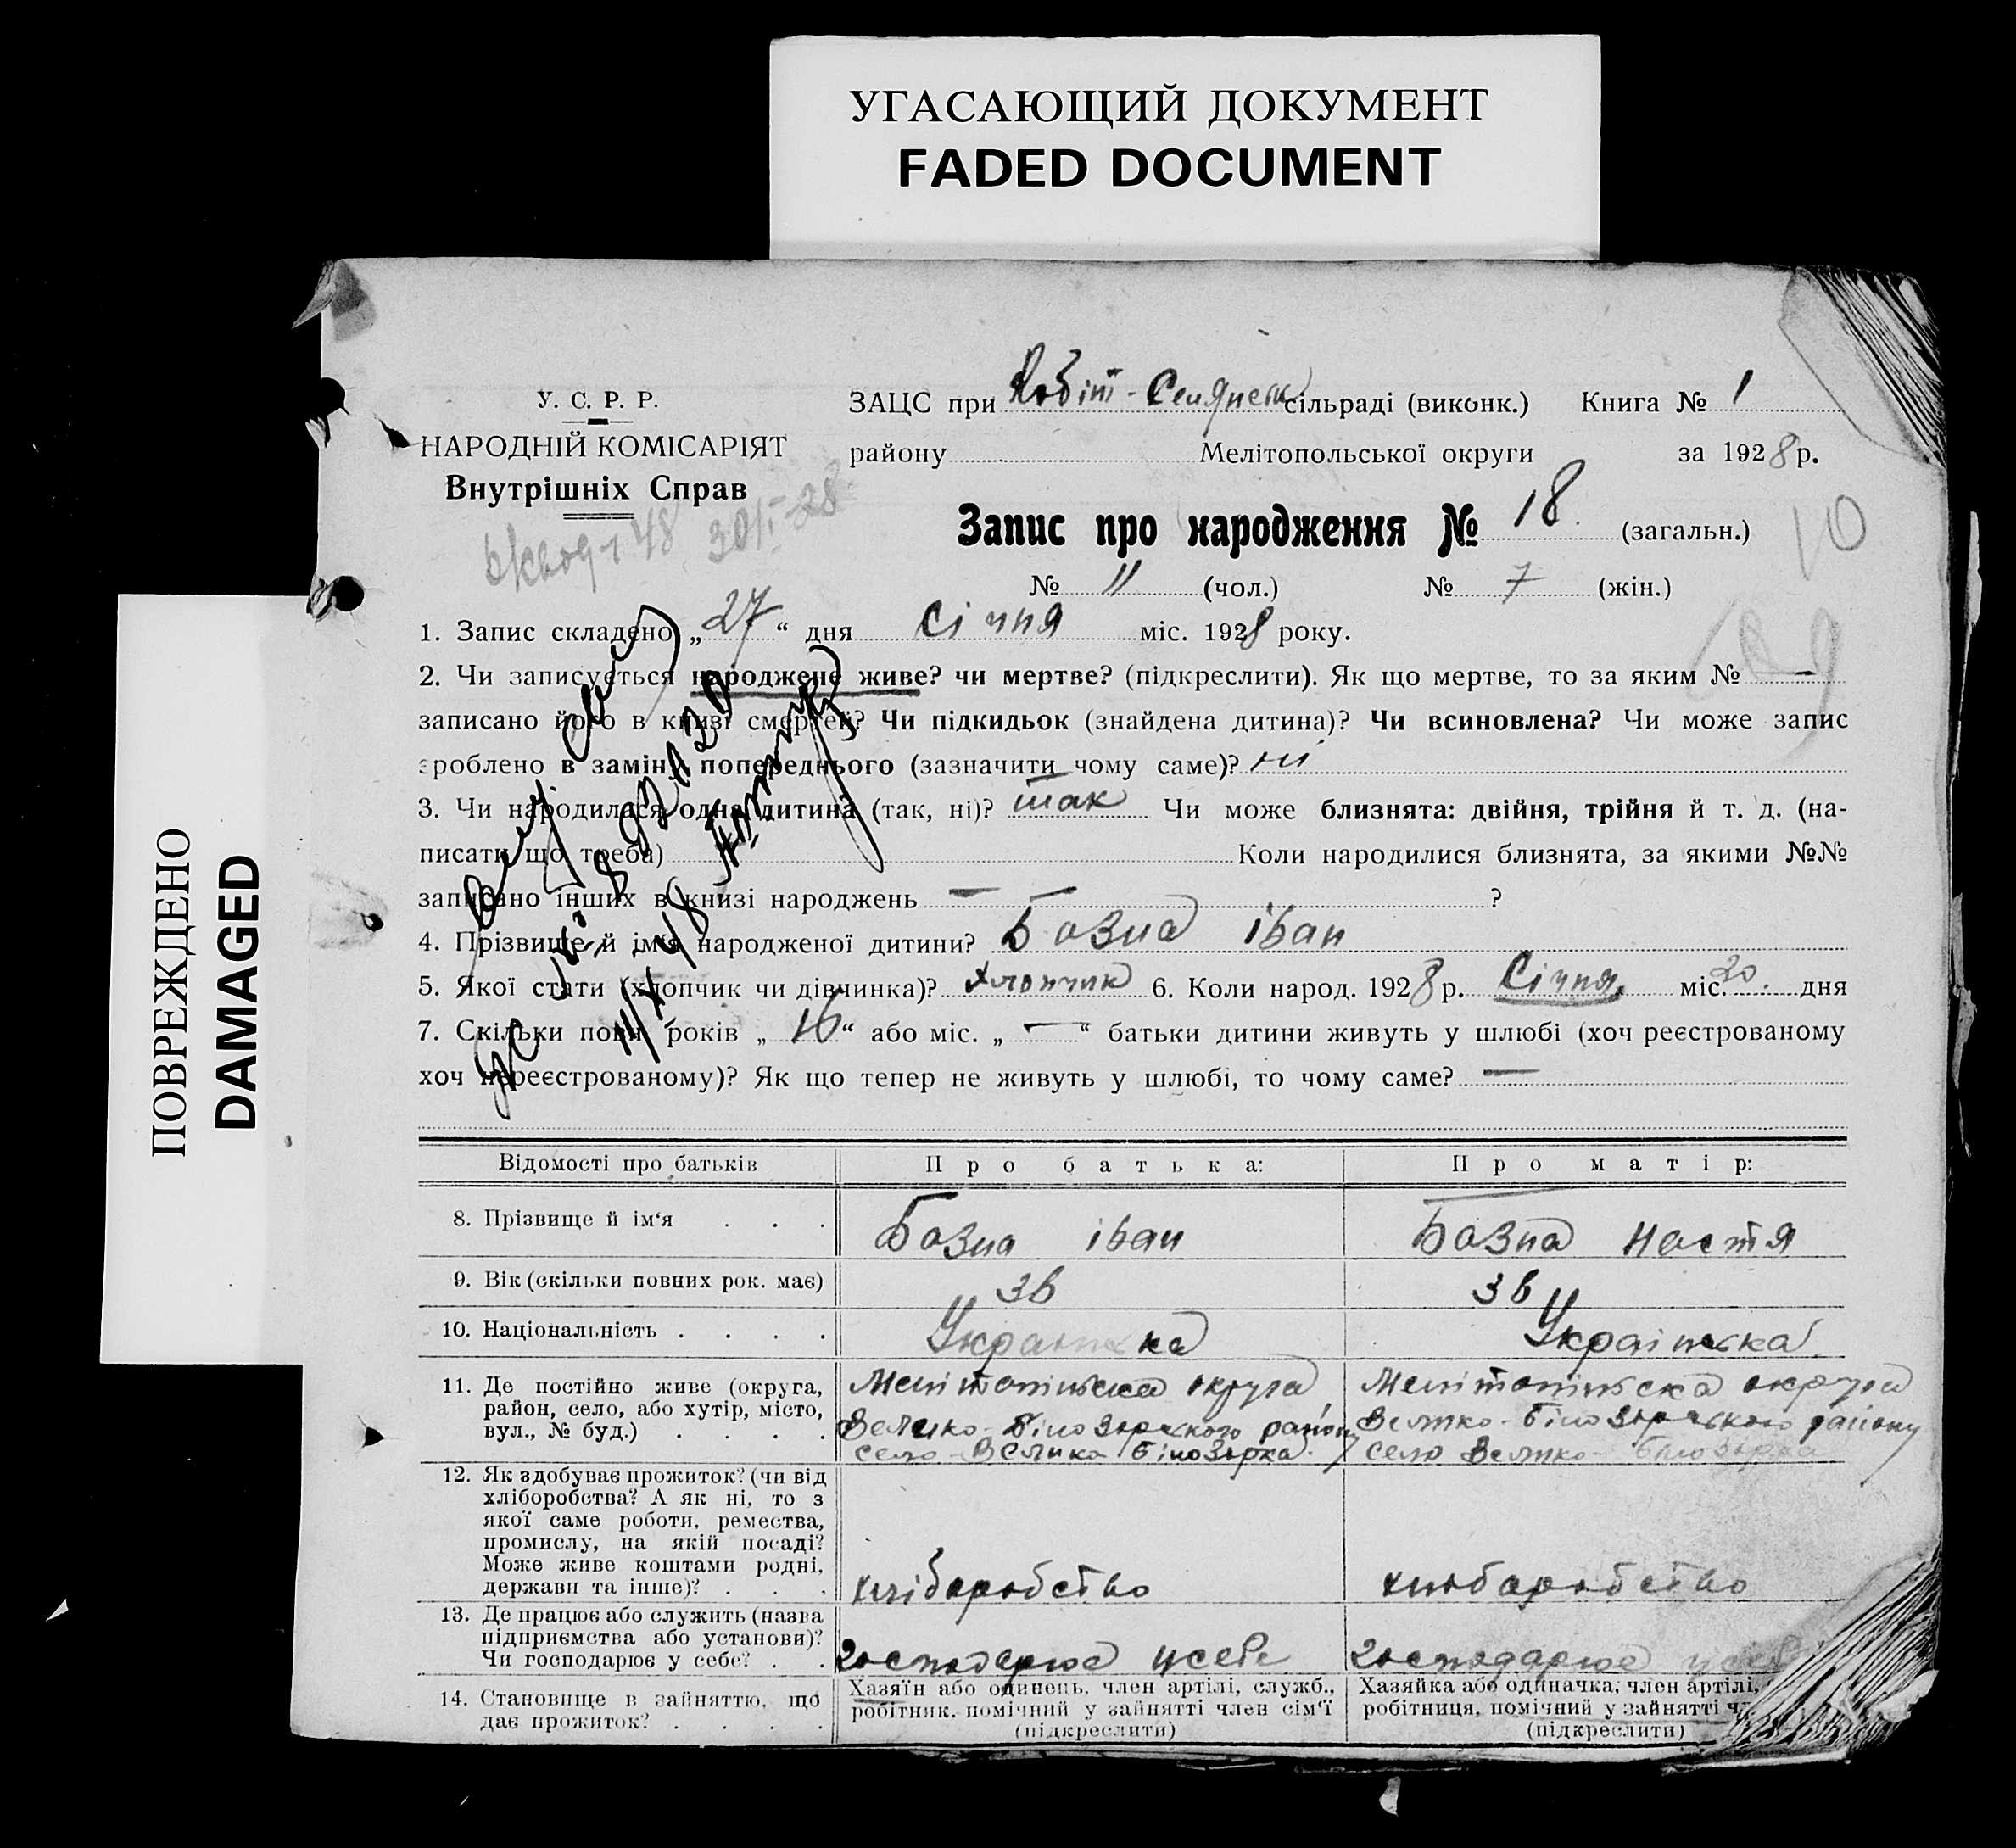 УГАСАЮЩИЙ ДОКУМЕНТ
FADED DOCUMENT
ПОВРЕЖДЕНО
DAMAGED
У. С. Р. Р.
НАРОДНІЙ КОМІСАРІЯТ
Внутрішніх Справ
30/I-28
ЗАЦС при Робіт-Селянськ сільраді (виконк.) Книга № 1
району Мелітопольської округи за 1928 р.
Запис про народження № 18 (загальн.)
10
№ 11 (чол.) № 7 (жін.)
1. Запис складено „27“ дня Січня міс. 1928 року.
2. Чи записується народжене живе? чи мертве? (підкреслити). Як що мертве, то за яким № —
записано його в книзі смертей? Чи підкидьок (знайдена дитина)? Чи всиновлена? Чи може запис
зроблено в заміну попереднього (зазначити чому саме)? ні
3. Чи народилася одна дитина (так, ні)? так Чи може близнята: двійня, трійня й т. д. (на-
писати що треба) Коли народилися близнята, за якими №№
записано інших в книзі народжень — ?
4. Прізвище й ім'я народженої дитини? Бозна іван
5. Якої стати (хлопчик чи дівчинка)? хлопчик 6. Коли народ. 1928 р. Січня міс. 20 дня
7. Скільки повн. років „16“ або міс. „—“ батьки дитини живуть у шлюбі (хоч реєстрованому
хоч нереєстрованому)? Як що тепер не живуть у шлюбі, то чому саме? —
Відомості про батьків Про батька: Про матір:
8. Прізвище й ім'я . . . Бозна іван Бозна Настя
9. Вік (скільки повних рок. має) 36 36
10. Національність . . . . Українка Українка
11. Де постійно живе (округа, район, село, або хутір, місто, вул., № буд.) . . . .
Мелітопільська округа
Велико-Білозорського району
село Велика Білозорка
Мелітопільська округа
Велико-Білозорського району
село Велико-Білозорка
12. Як здобуває прожиток? (чи від
хліборобства? А як ні, то з
якої саме роботи, ремества,
промислу, на якій посаді?
Може живе коштами родні,
держави та інше)? . . . хліборобство хлоборобство
13. Де працює або служить (назва
підприємства або установи)?
Чи господарює у себе? . . Господарює у себе Господарює у себе
14. Становище в зайняттю, що
дає прожиток? . . . .
Хазяїн або одинець, член артілі, служб.,
робітник, помічний у зайнятті член сім'ї
(підкреслити)
Хазяйка або одиначка, член артілі,
робітниця, помічний у зайнятті
(підкреслити)